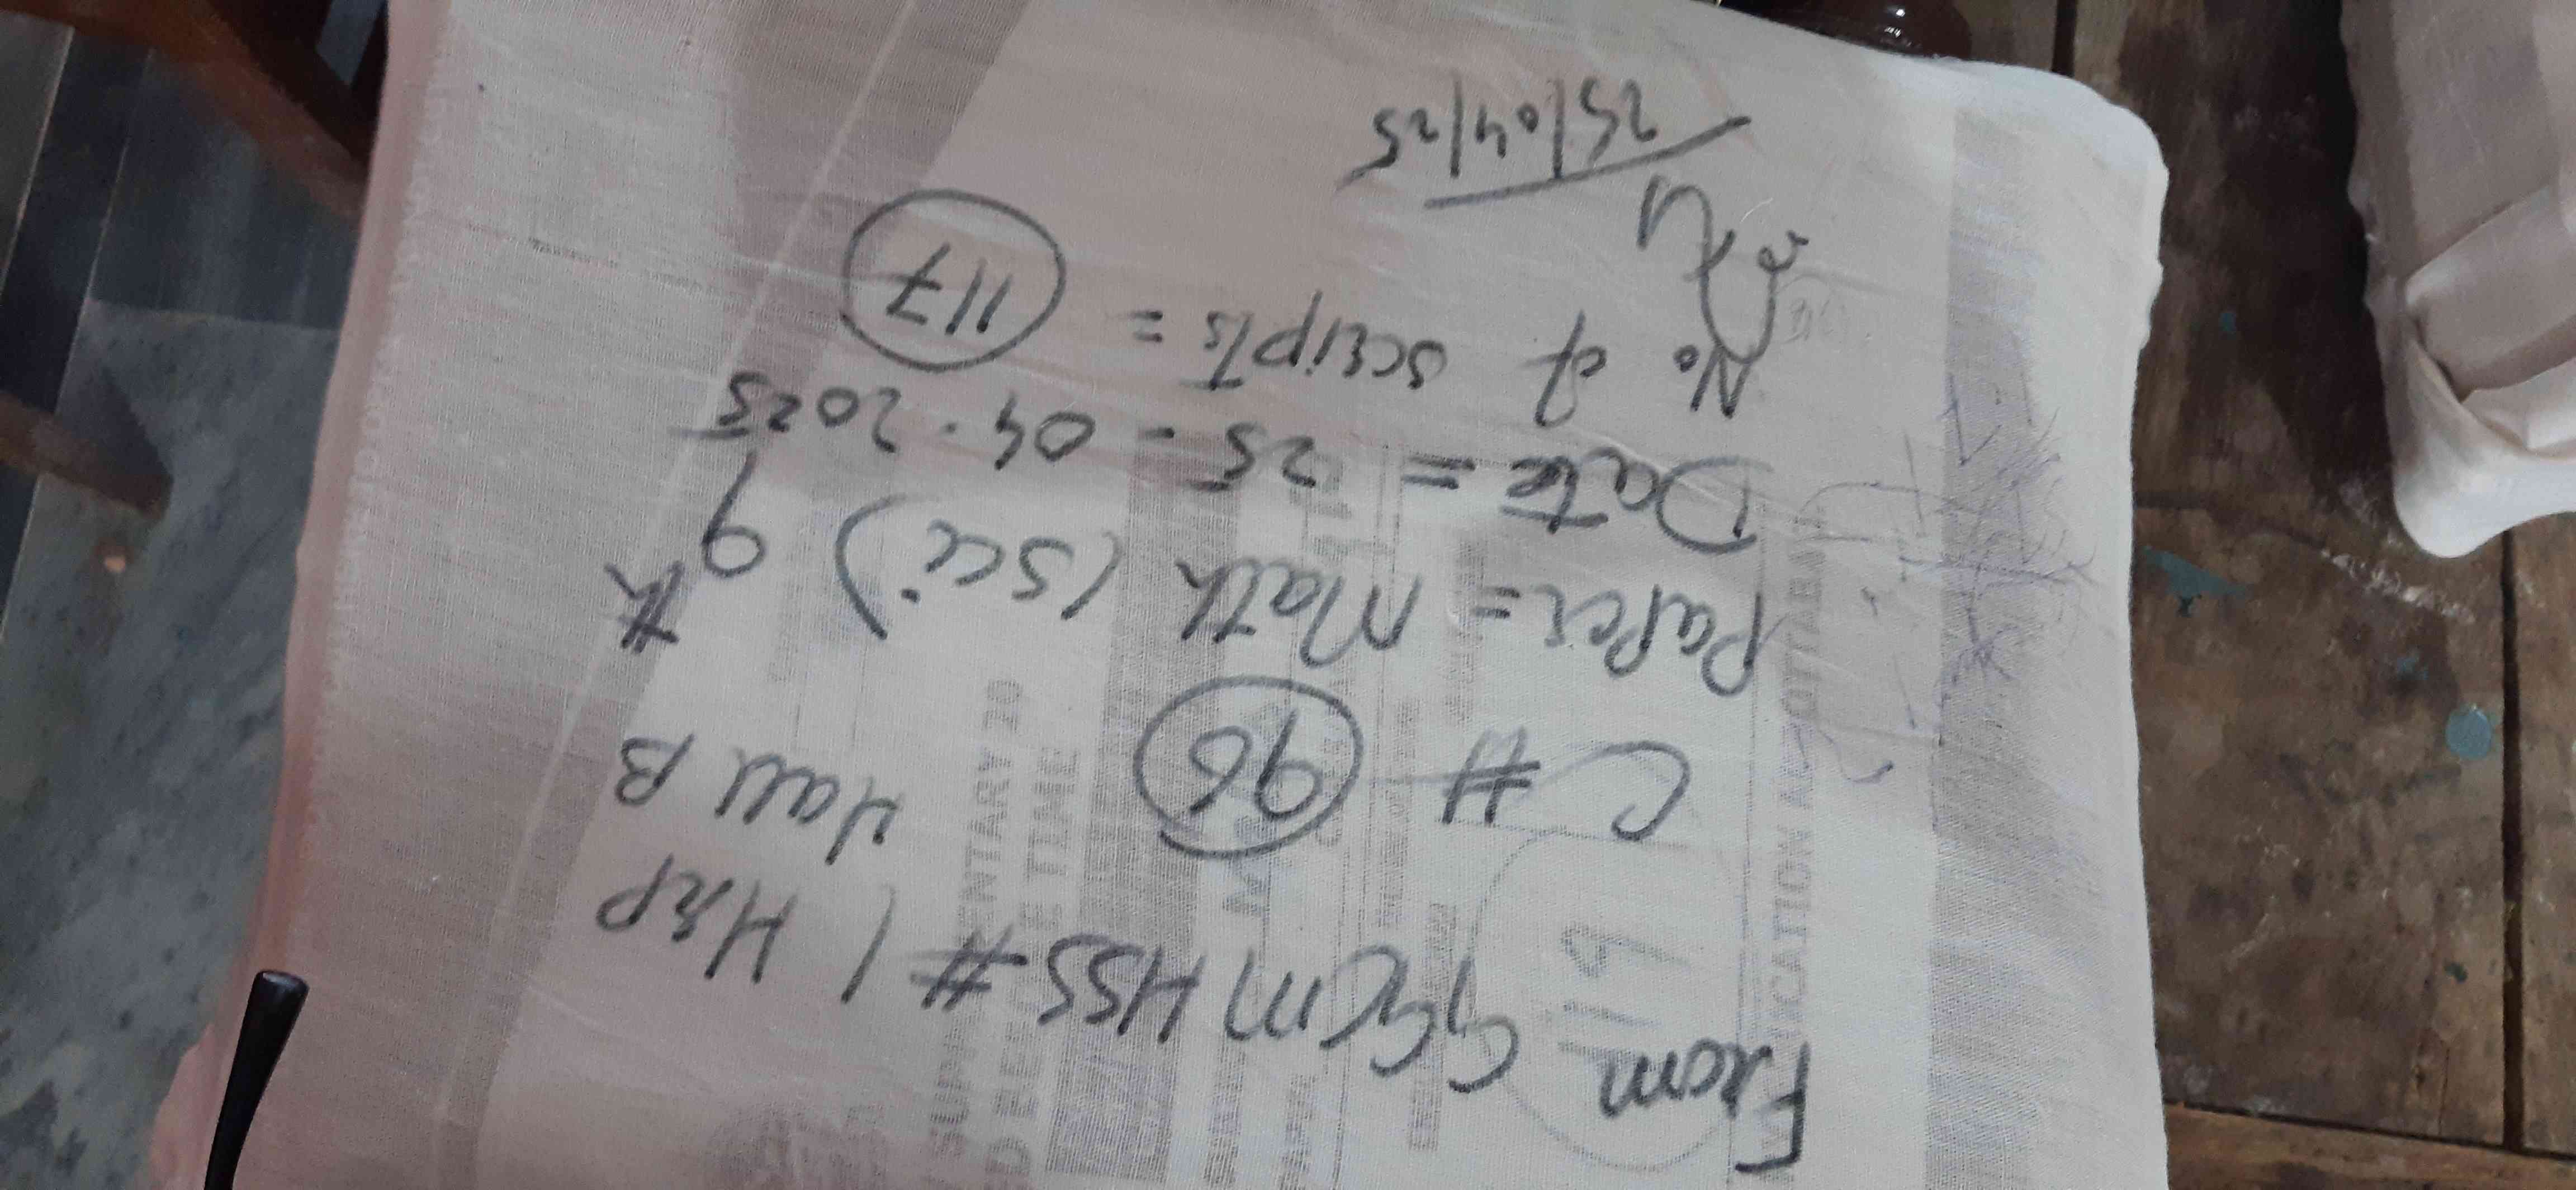 From GGCMHSS #1 HRP
C # 96 Hall B
Paper = Math (Sci) 9th
Date = 25 - 04 - 2025
No of scripts = 117
25/04/25
119
SUPP ENTARY 20
E TIME